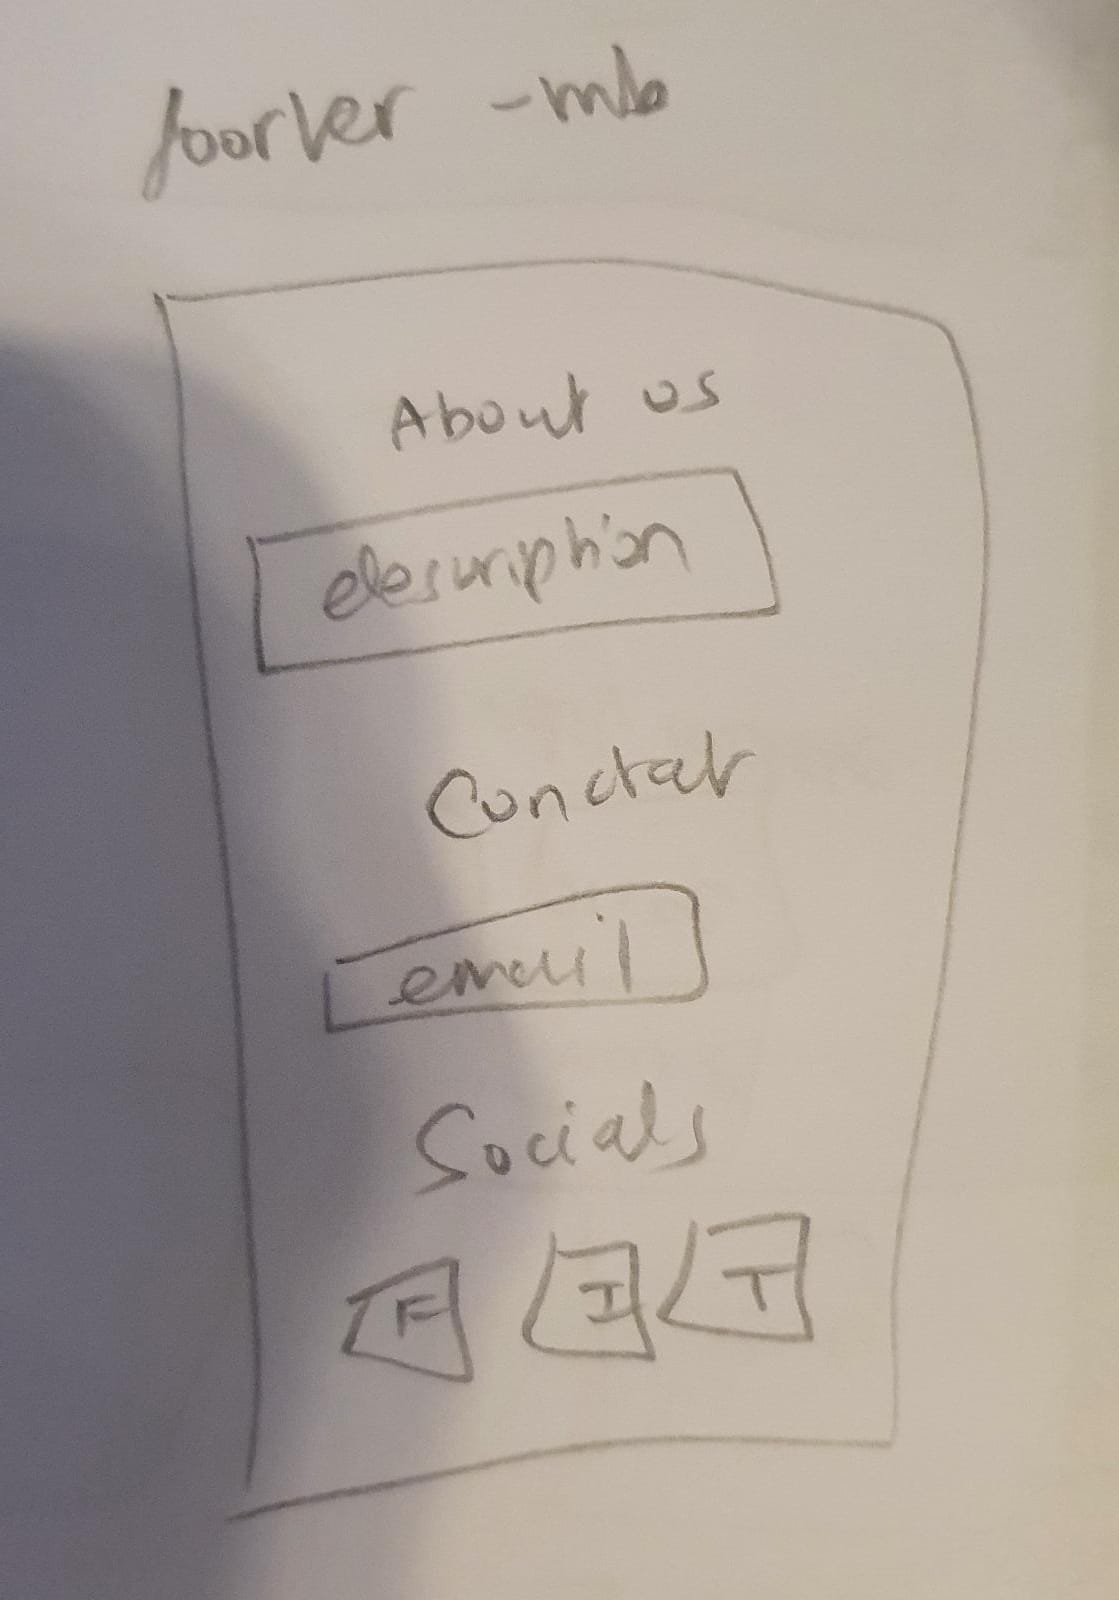 footer - mb
About us
description
Conctat
email
Socials
F I T